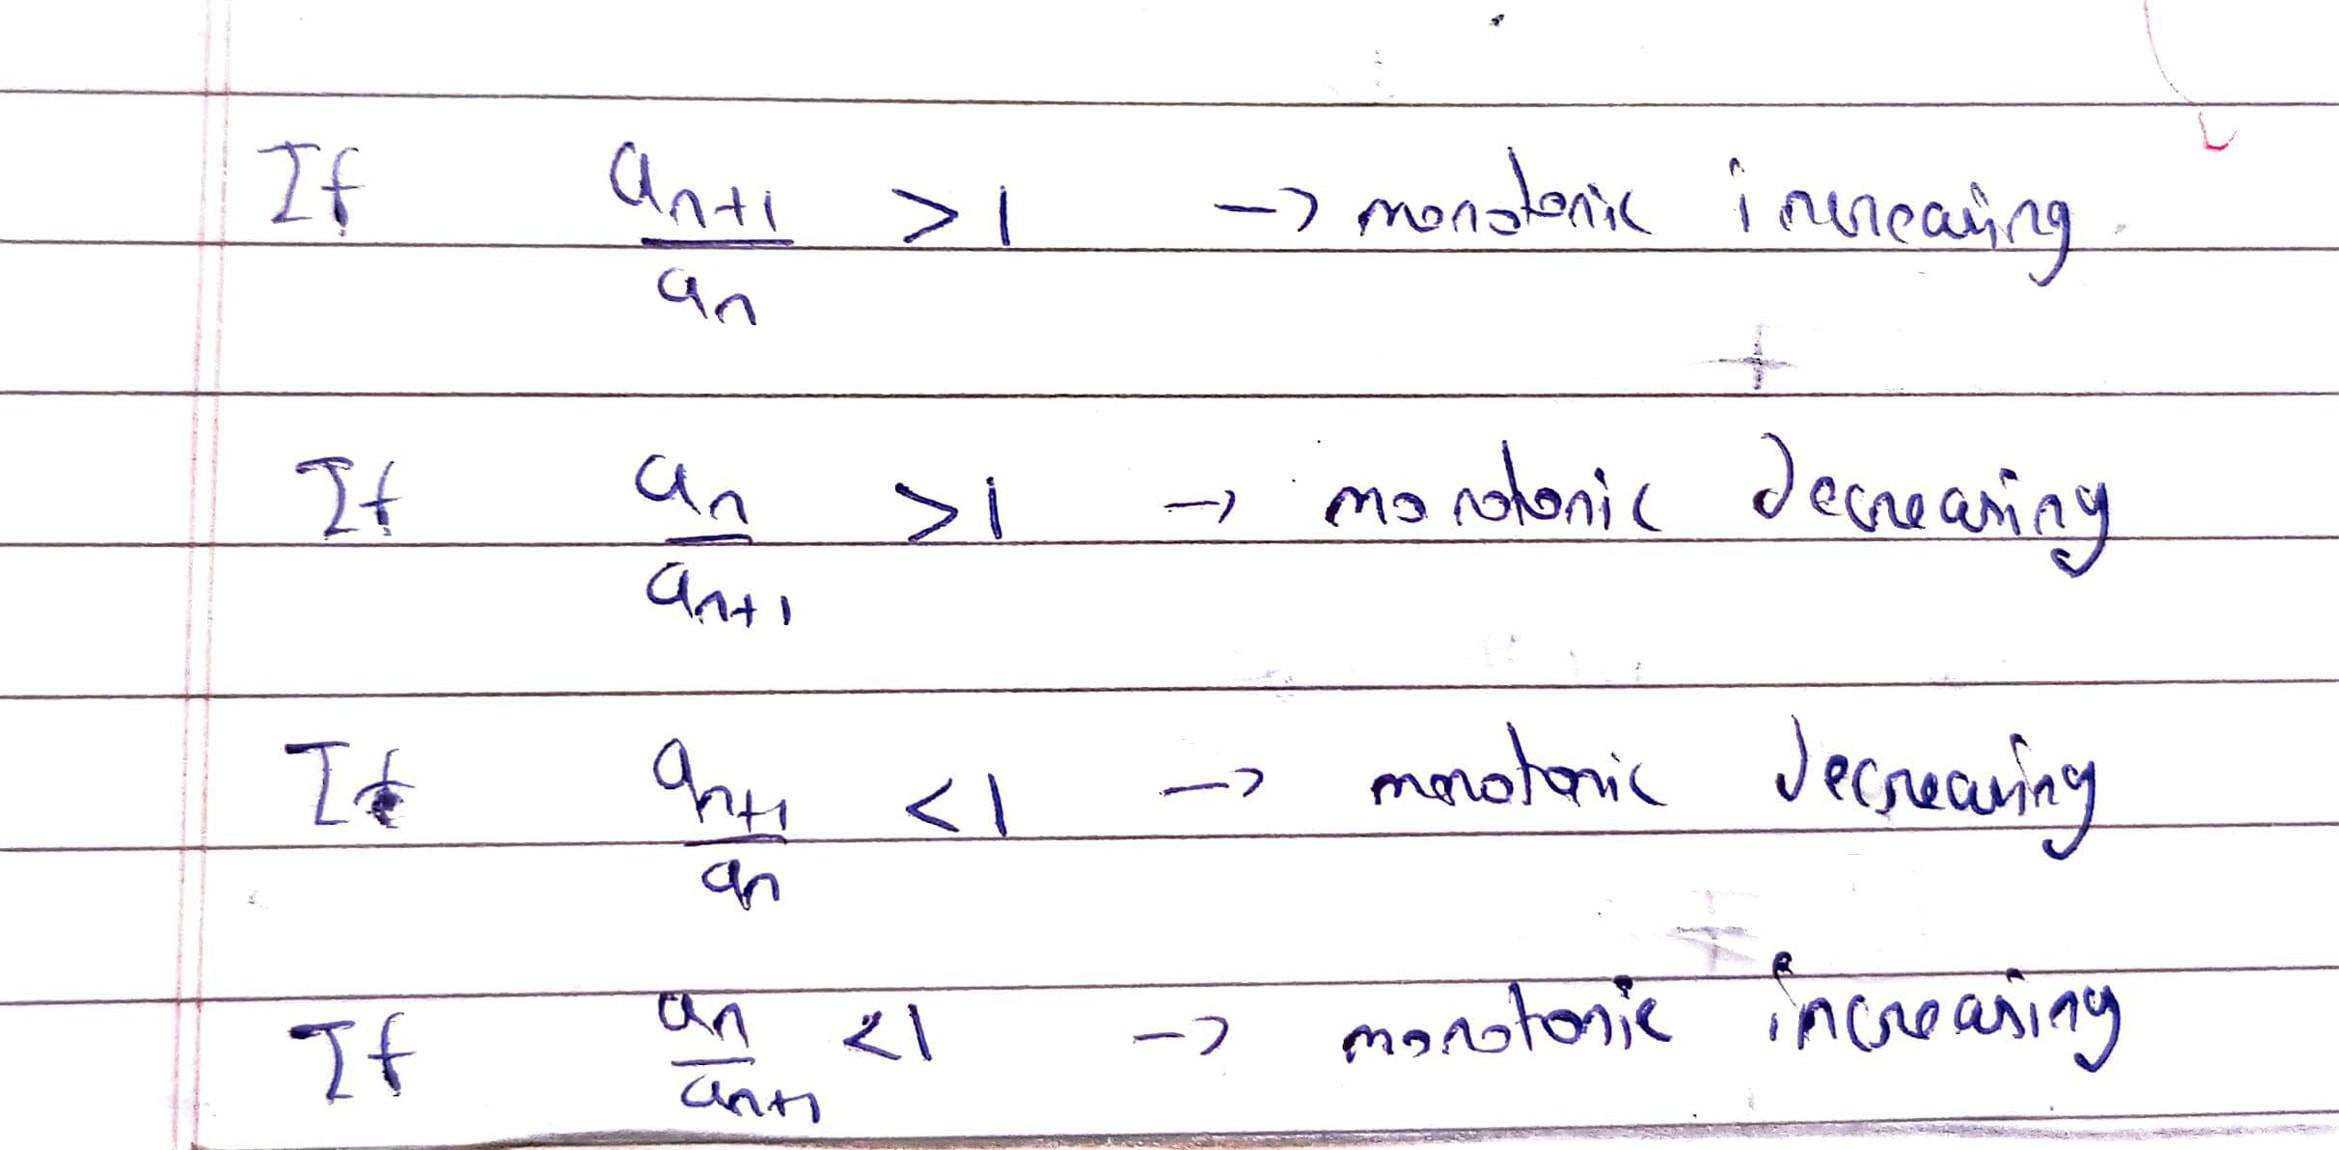 If a_{n+1}/a_n > 1 -> monotonic increasing.
If a_n/a_{n+1} > 1 -> monotonic decreasing
If a_{n+1}/a_n < 1 -> monotonic decreasing
If a_n/a_{n+1} < 1 -> monotonic increasing